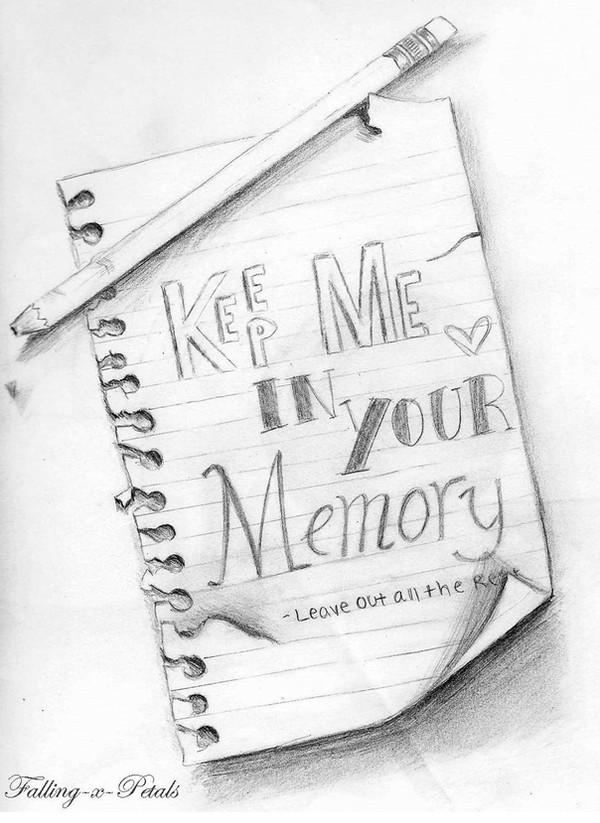 KEEP ME
IN YOUR
Memory
-Leave out all the Re
Falling-x-Petals